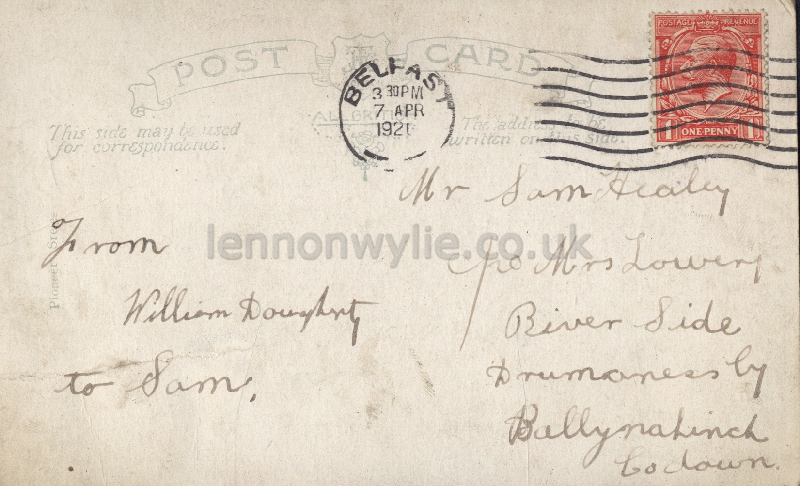 POST CARD
BELFAST
3 30 PM
7 APR
1921
POSTAGE REVENUE
1 ONE PENNY 1
This side may be used
for correspondence.
The address to be
written on this side.
Mr Sam Healey
c/o Mrs Lowery
River Side
Drumaness by
Ballynahinch
Co down.
From
William Dougherty
to Sam.
lennonwylie.co.uk